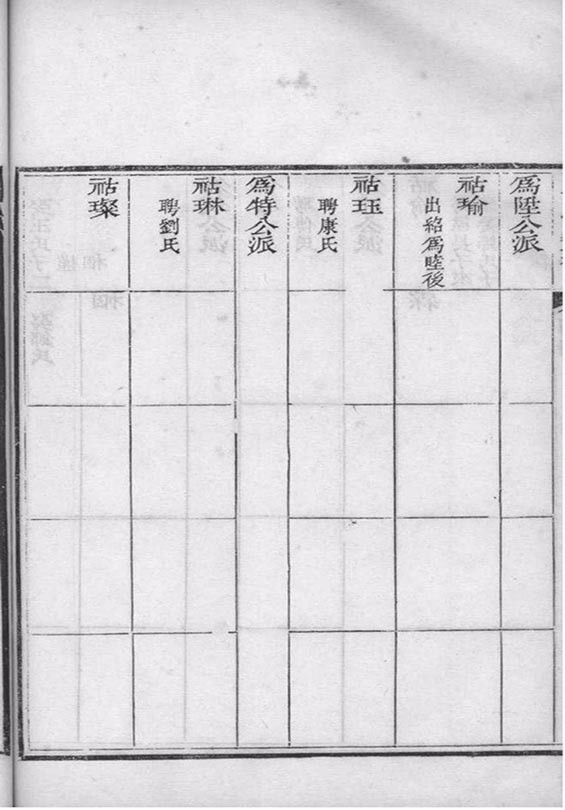 爲陞公派
祜瑜
出紹爲睦後
祜珏
聘康氏
爲特公派
祜琳
聘劉氏
祜璨